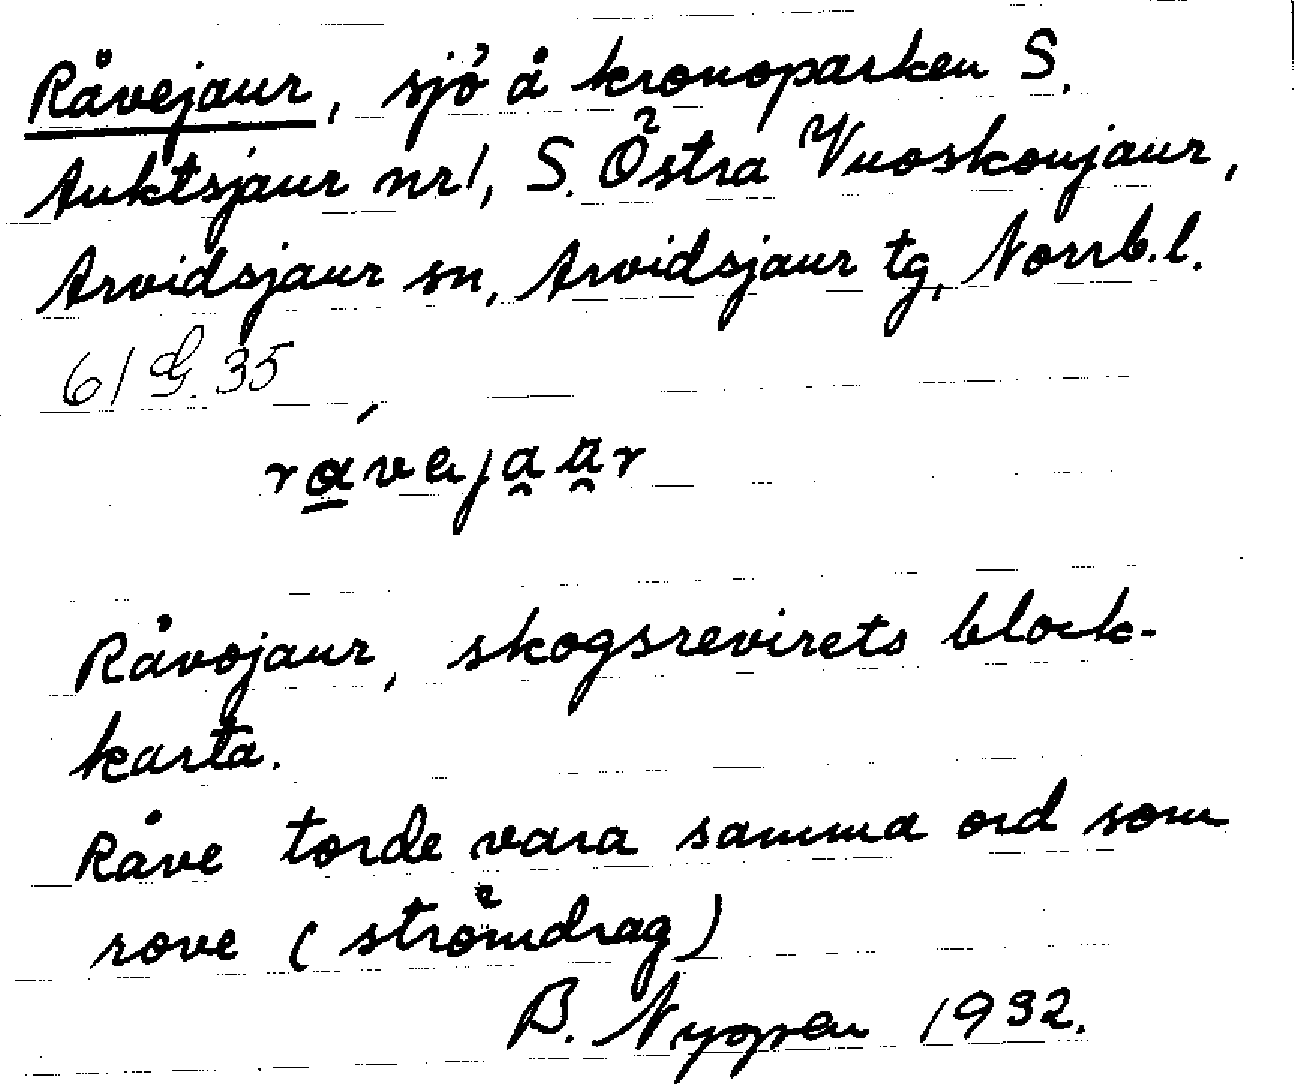 Råvejaur, sjö å kronoparken S.
Auktsjaur nr 1, S. Östra Vuoskonjaur,
Arvidsjaur sn, Arvidsjaur tg, Norrb. l.
61 G. 35
rávejaur
Råvojaur, skogsrevirets block-
karta.
Råve torde vara samma ord som
rove (strömdrag)
B. Nygren 1932.